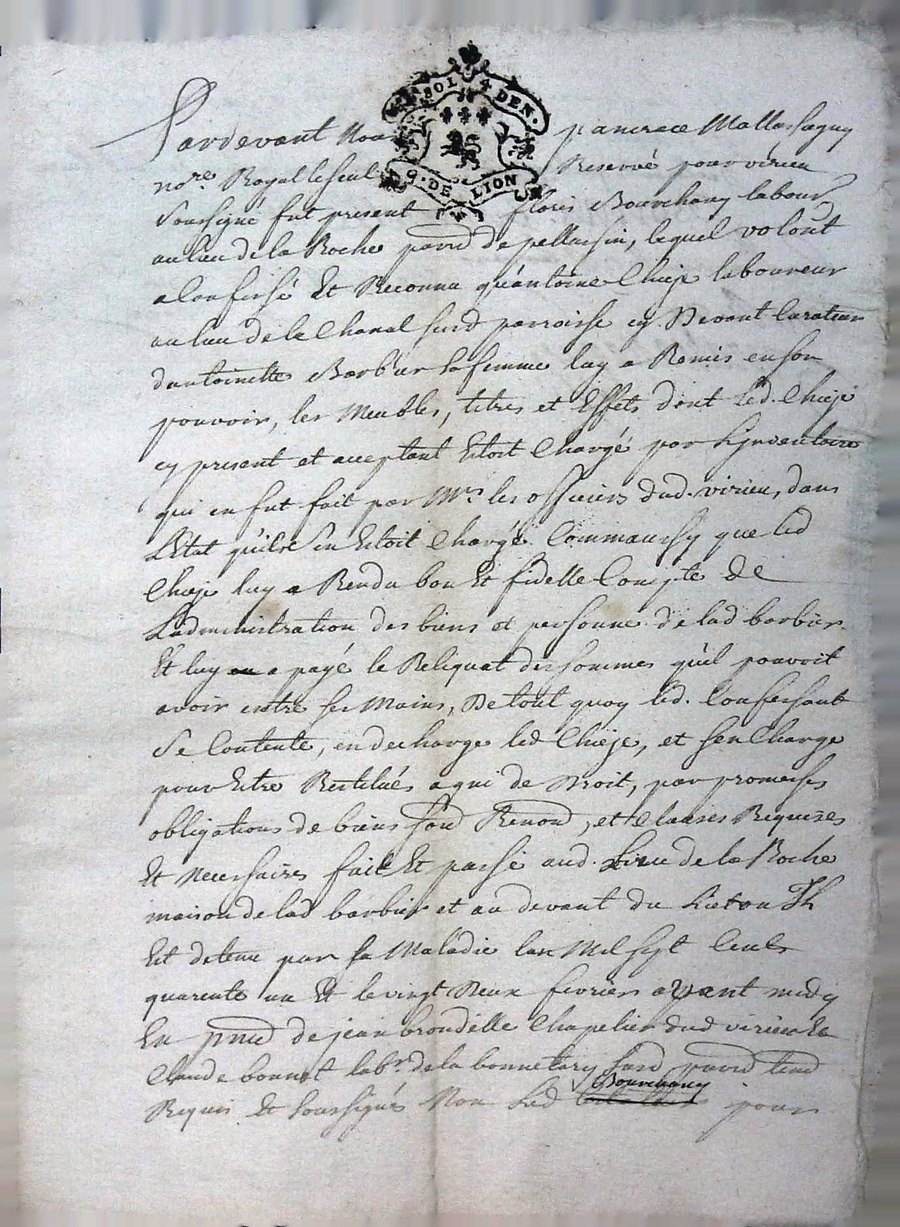 SOL 4 DEN.
G. DE LION
Pardevant Nou pancrace Mallassagny
no.re Royal le seul Reservé pour virieu
Soussigné fut present floris Bourchany labour
au lieu de la Roche parr.d de pellussin, lequel volont
a Confessé Et Reconnu qu'antoine Chieze laboureur
au lieu de la Chanal surd parroisse cy Devant Curateur
dantoinette Barbier sa femme luy a Remis en son
pouvoir, les Meubles, titres et Effets dont led. Chieze
cy present et acceptant Estoit Chargé par Lynventaire
qui en fut fait par Mrs les officiers dud. virieu, dans
L'Etat qu'il s'en Estoit Chargé. Comm'aussy que led
Chieze luy a Rendu bon Et fidelle Compte De
L'administration des biens et personne de lad barbier
Et luy a payé le Reliquat des sommes qu'il pouvoit
avoir entre ses Mains, De tout quoy led. Confessant
Se Contente, en decharge led Chieze, et s'en Charge
pour Estre Restitués a qui de Droit, par promesses
obligations de biens Renond, et Clauses Requises
Et Necessaires fait Et passé aud. Lieu de la Roche
maison de lad barbier et au devant du
Est detenu par sa Maladie lan Mil sept Cents
quarente un Et le vingt Deux fevrier avant midy
En pnce de jean brondelle Chapelier dud virieu Et
Claude bonnet labr de la bonnetary surd parr.d
Requis Et Soussignés Non Led Bourchany pour